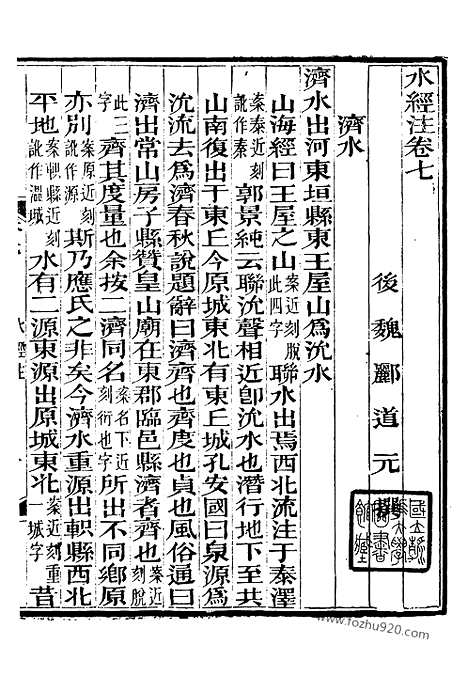 水經注卷七
後魏酈道元
濟水
濟水出河東垣縣東王屋山為沇水
山海經曰王屋之山案近刻脫此四字聯水出焉西北流注于秦澤
案秦近刻訛作泰郭景純云聯沇聲相近卽沇水也潛行地下至共
山南復出于東丘今原城東北有東丘城孔安國曰泉源為
沇流去為濟春秋說題辭曰濟齊也齊度也貞也風俗通曰
濟出常山房子縣贊皇山廟在東郡臨邑縣濟者齊也案近刻脫
此三字齊其度量也余按二濟同名案名下近刻衍也字所出不同鄉原
亦別案原近刻訛作源斯乃應氏之非矣今濟水重源出軹縣西北
平地案軹縣近刻訛作溫城水有二源東源出原城東北案近刻重一城字昔
www.fozhu920.com